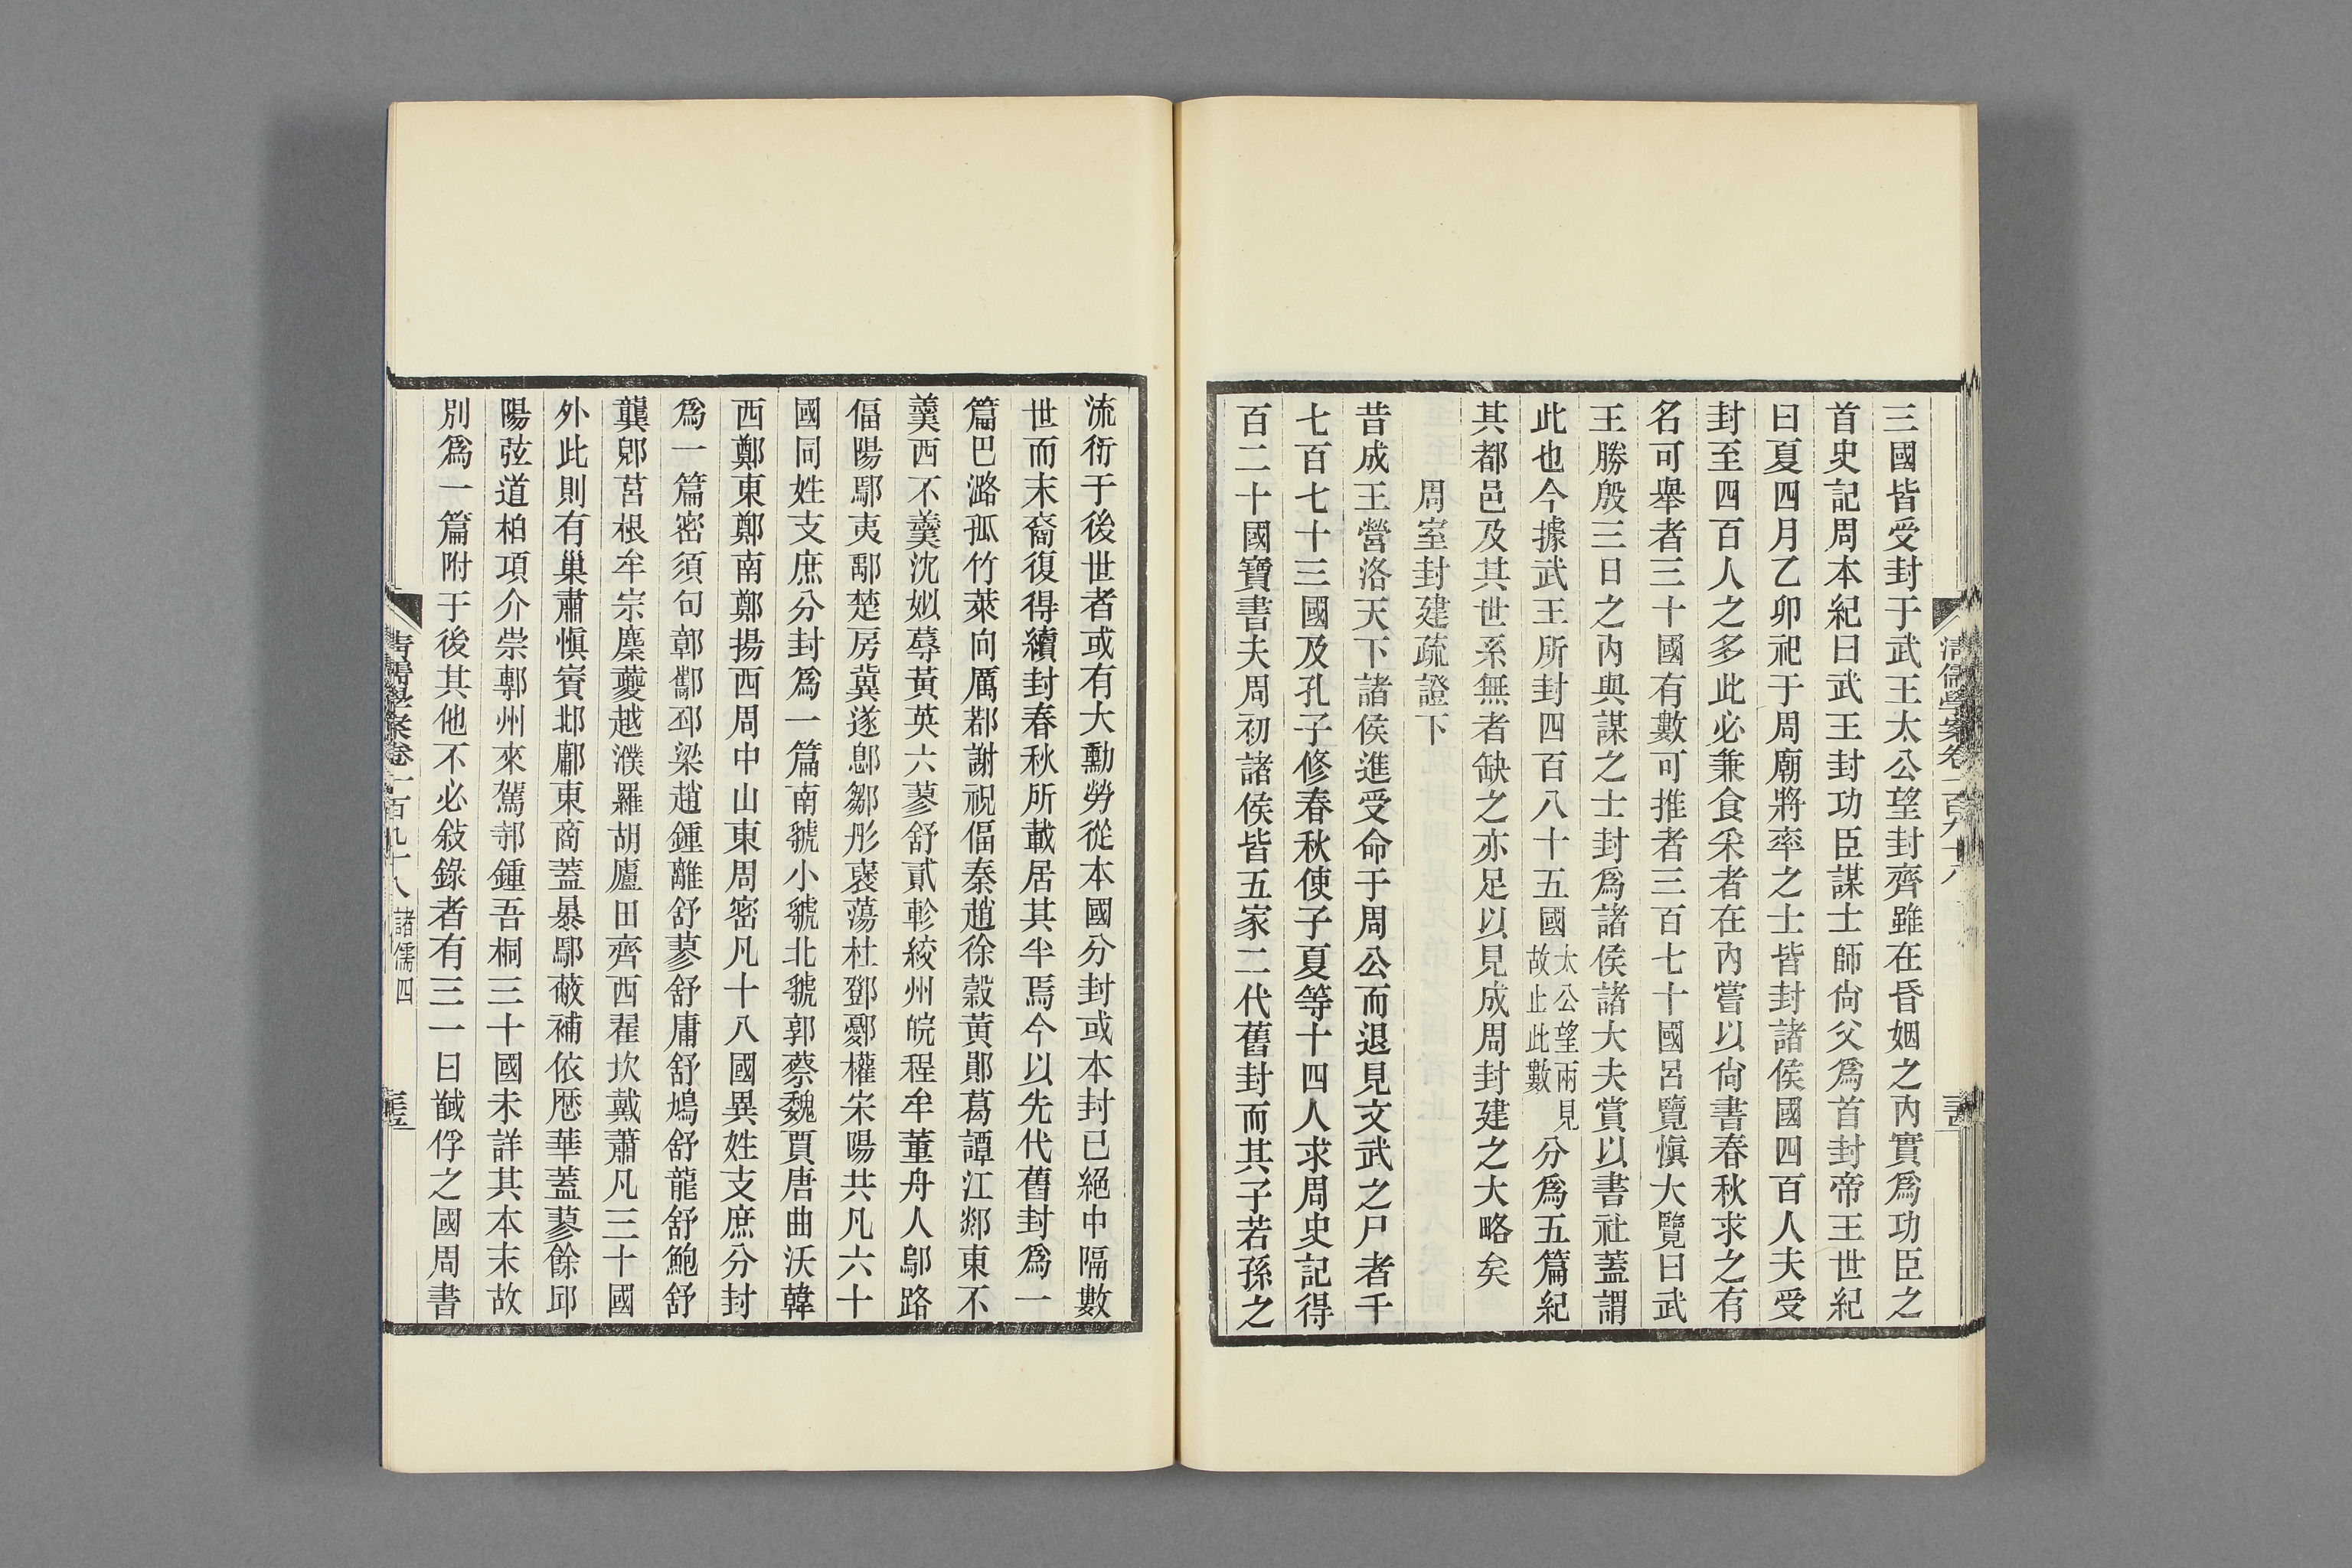 清儒學案卷一百九十八
三國皆受封于武王太公望封齊雖在昏姻之內實爲功臣之
首史記周本紀曰武王封功臣謀士師尙父爲首封帝王世紀
曰夏四月乙卯祀于周廟將率之士皆封諸侯國四百人夫受
封至四百人之多此必兼食采者在內嘗以尙書春秋求之有
名可舉者三十國有數可推者三百七十國呂覽愼大覽曰武
王勝殷三日之內與謀之士封爲諸侯諸大夫賞以書社蓋謂
此也今據武王所封四百八十五國太公望兩見故止此數分爲五篇紀
其都邑及其世系無者缺之亦足以見成周封建之大略矣
周室封建疏證下
昔成王營洛天下諸侯進受命于周公而退見文武之尸者千
七百七十三國及孔子修春秋使子夏等十四人求周史記得
百二十國寶書夫周初諸侯皆五家二代舊封而其子若孫之
流衍于後世者或有大勳勞從本國分封或本封已絕中隔數
世而末裔復得續封春秋所載居其半焉今以先代舊封爲一
篇巴潞孤竹萊向厲鄀謝祝偪秦趙徐穀黃鄖葛譚江郯東不
羹西不羹沈姒蓐黃英六蓼舒貳軫絞州皖程牟董舟人鄔路
偪陽鄅夷鄢楚房冀遂鄎鄒彤裦蕩杜鄧鄾權宋陽共凡六十
國同姓支庶分封爲一篇南虢小虢北虢郭蔡魏賈唐曲沃韓
西鄭東鄭南鄭揚西周中山東周密凡十八國異姓支庶分封
爲一篇密須句鄣酅邳梁趙鍾離舒蓼舒庸舒鳩舒龍舒鮑舒
龔郳莒根牟宗麇夔越濮羅胡廬田齊西翟坎戴蕭凡三十國
外此則有巢肅愼賓邶鄘東商蓋暴鄢蔽補依厯華蓋蓼餘邱
陽弦道柏項介崇鄟州來駕邿鍾吾桐三十國未詳其本末故
別爲一篇附于後其他不必敍錄者有三一曰馘俘之國周書
清儒學案卷一百九十八 諸儒四